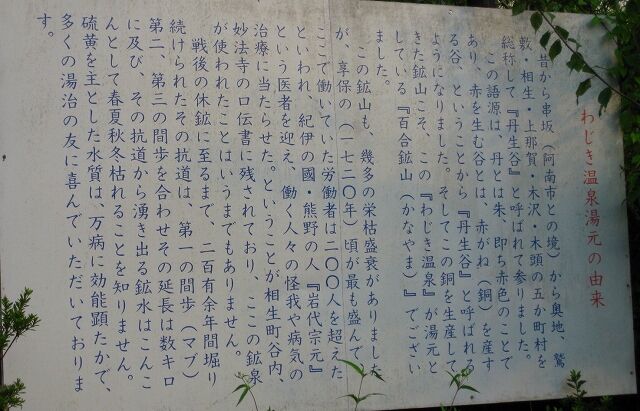 わじき温泉湯元の由来
昔から串坂（阿南市との境）から奥地、鷲
敷・相生・上那賀・木沢・木頭の五か町村を
総称して『丹生谷』と呼ばれて参りました。
この語源は、丹とは朱、即ち赤色のことで
あり、赤を生む谷とは、赤がね（銅）を産す
る谷、ということから『丹生谷』と呼ばれる
ようになりました。そしてこの銅を生産して
きた鉱山こそ、この『わじき温泉』が湯元と
している『百合鉱山（かなやま）』でござい
ました。
この鉱山も、幾多の栄枯盛衰がありました
が、享保の（一七二〇年）頃が最も盛んで、
ここで働いていた労働者は二〇〇人を超えた
といわれ、紀伊の國・熊野の人『岩代宗元』
という医者を迎え、働く人々の怪我や病気の
治療に当たらせた。ということが相生町谷内、
妙法寺の口伝書に残されており、ここの鉱泉
が使われたことはいうまでもありません。
戦後の休鉱に至るまで、二百有余年間堀り
続けられたその抗道は、第一の間歩（マブ）
第二、第三の間歩を合わせその延長は数キロ
に及び、その抗道から湧き出る鉱水はこんこ
んとして春夏秋冬枯れることを知りません。
硫黄を主とした水質は、万病に効能顕たかで、
多くの湯治の友に喜んでいただいておりま
す。